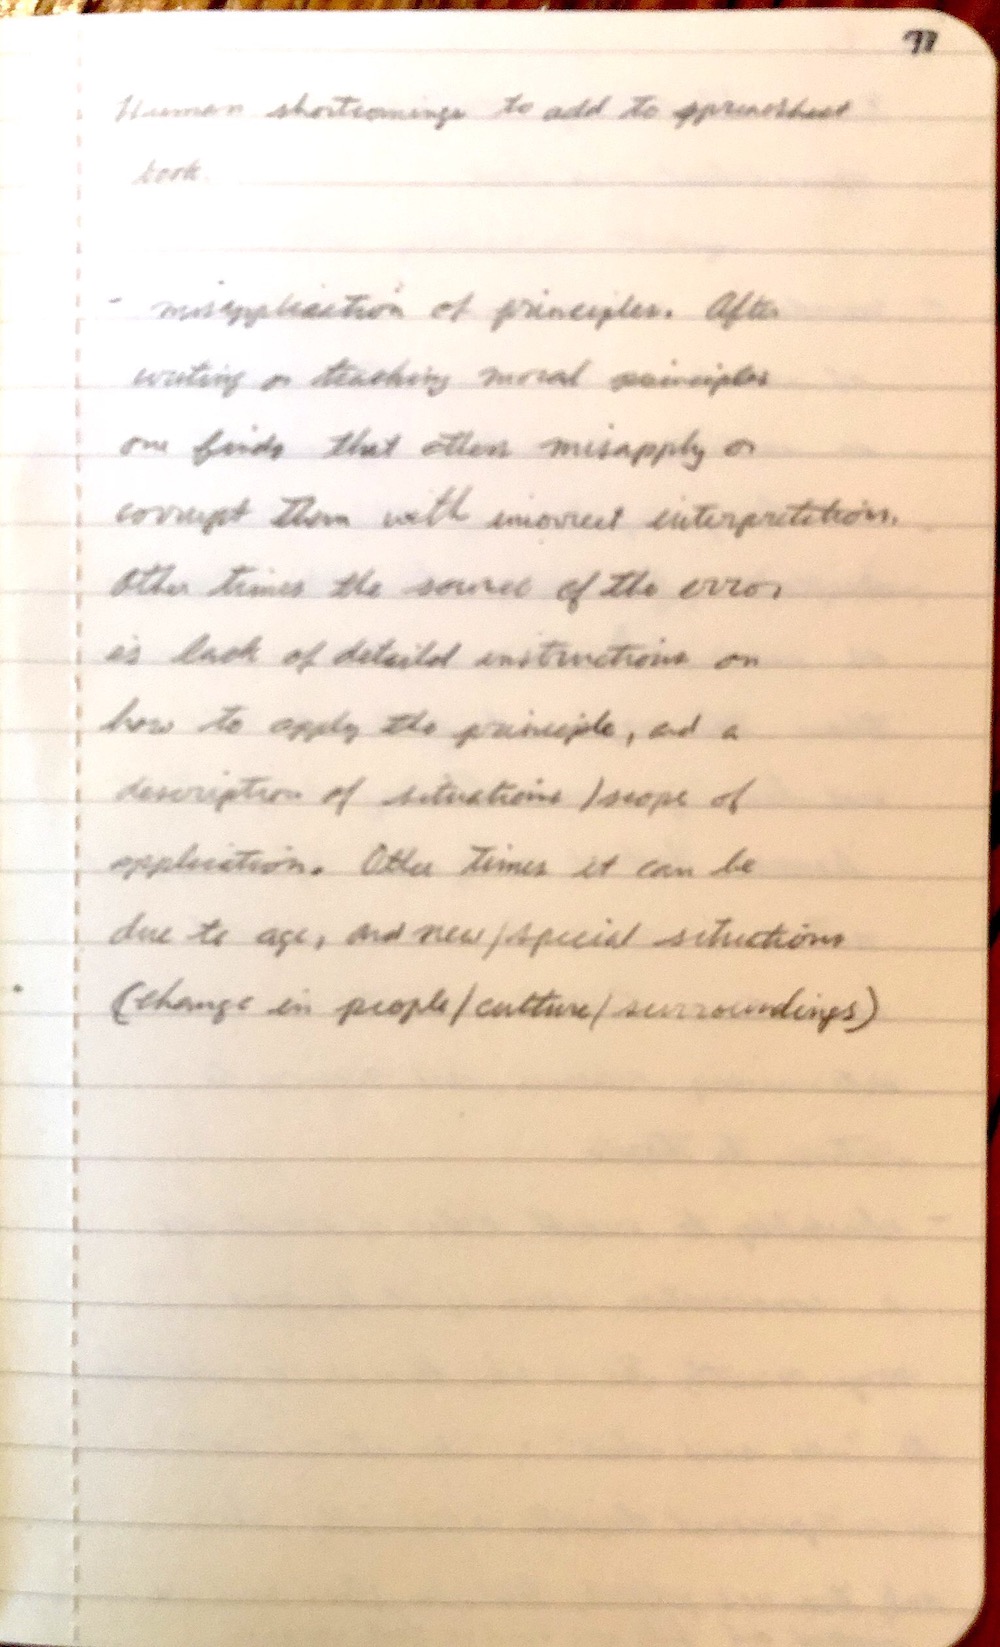 77
Human shortcomings to add to spreadsheet
book.
- misapplication of principles. After
writing or teaching moral principles
one finds that others misapply or
corrupt them with incorrect interpretations.
Other times the source of the error
is lack of detaild instructions on
how to apply the principle, and a
description of situations / scope of
application. Other times it can be
due to age, and new/special situctions
(change in people/culture/surroundings)